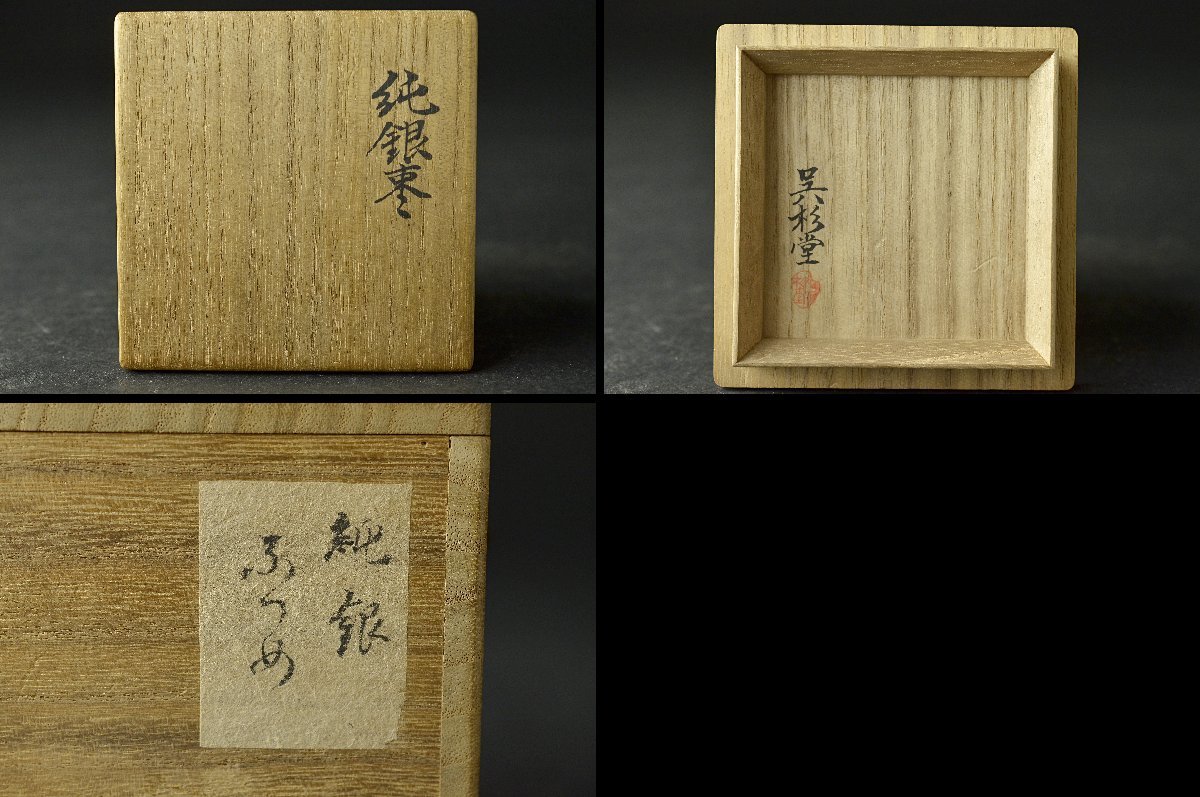 純銀棗
呉杉堂
純銀
なつめ